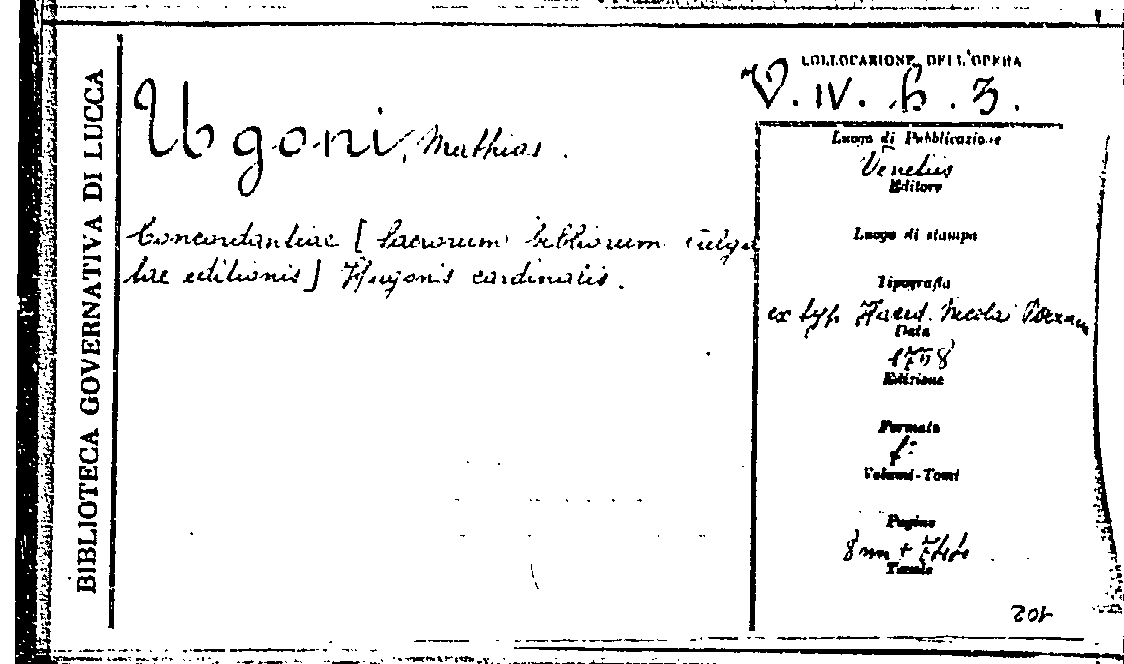 BIBLIOTECA GOVERNATIVA DI LUCCA
COLLOCAZIONE DELL'OPERA
V. IV. b. 3.
Ugoni, Mathias.
Concordantiae [sacrorum bibliorum vulga
tae editionis] Hugonis cardinalis.
Luogo di Pubblicazione
Venetiis
Editore
Luogo di stampa
Tipografia
ex typ. Haered. Nicolai
Data
1758
Edizione
Formato
f:
Volumi-Tomi
Pagine
8 nn +
Tavole